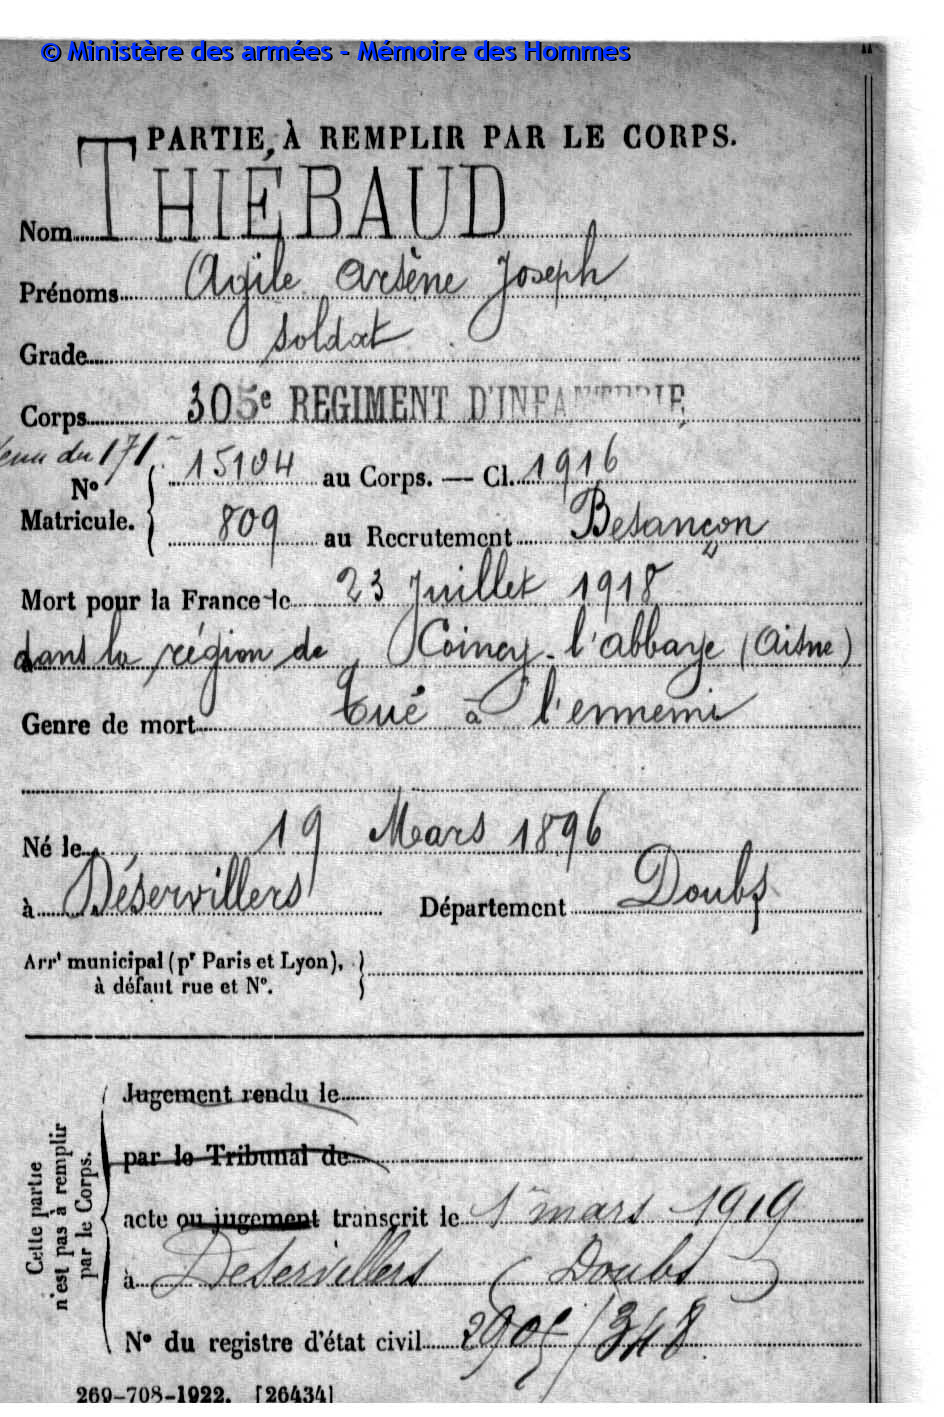 © Ministère des armées - Mémoire des Hommes
PARTIE À REMPLIR PAR LE CORPS.
Nom THIÉBAUD
Prénoms Agile Arsène Joseph
Grade soldat
Corps 305e REGIMENT D'INFANTERIE
venu du 171e
N° Matricule. 15104 au Corps. — Cl. 1916
809 au Recrutement Besançon
Mort pour la France le 23 Juillet 1918
dans la région de Coincy-l'abbaye (Aisne)
Genre de mort tué à l'ennemi
Né le 19 Mars 1896
à Déservillers Département Doubs
Arrt municipal (pr Paris et Lyon),
à défaut rue et N°.
Cette partie
n'est pas à remplir
par le Corps.
Jugement rendu le
par le Tribunal de
acte ou jugement transcrit le 1er mars 1919
à Déservillers (Doubs)
N° du registre d'état civil /348
269-708-1922. [26434]